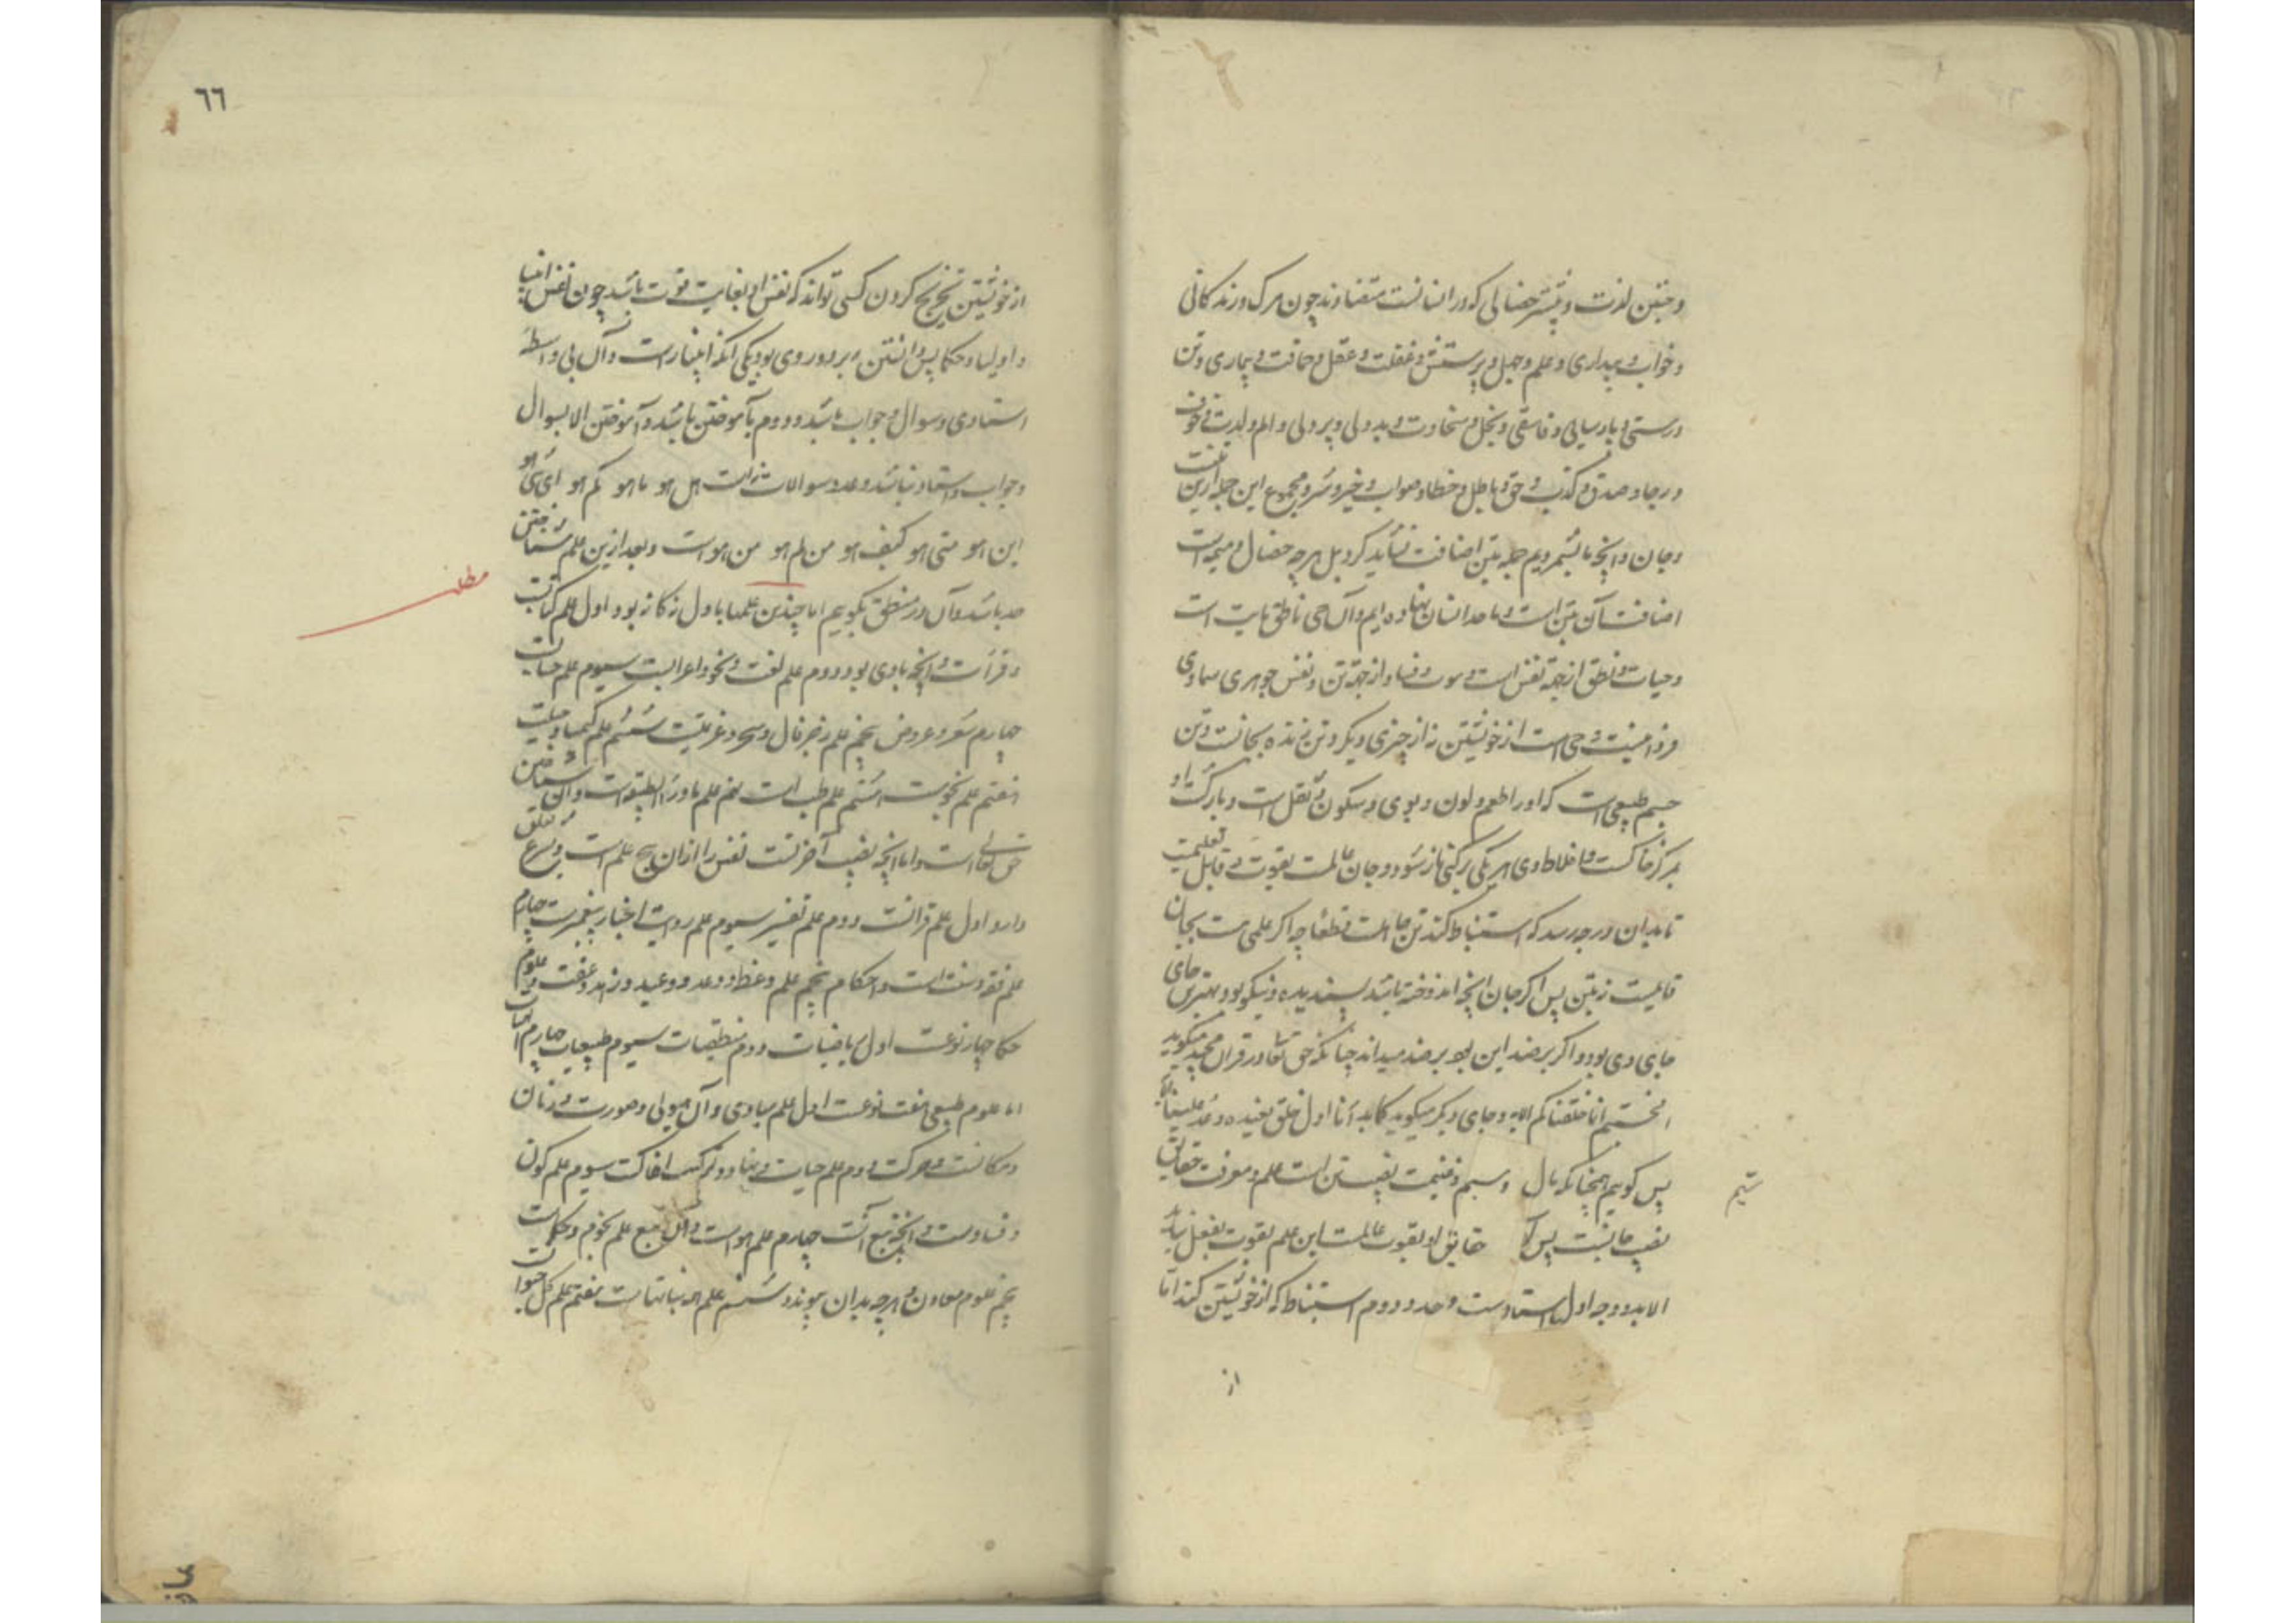 و جنبش لذت و بیشتر خصالی که در انسانست متضادند چون مرک و زندکانی
و خواب و بیداری و علم و جهل و پرستش و غفلت و عقل و حماقت و بیماری و تن
درستی و پارسایی و فاسقی و بخل و سخاوت و بددلی و پردلی و الم و لذت و خوف
و رجا و صدق و کذب و حق و باطل و خطا و صواب و خیر و شر و مجموع این جمله از تن
و جان و آنچه ما بشمردیم جمله بتن اضافت نشاید کرد بل هر چه خصال است
اضافت آن بتن است و ما حد انسان نهاده ایم و آن حی ناطق مایت است
و حیات و نطق از جهة نفس است و موت و فساد از جهة تن و نفس جوهری سماوی
و حی است از خویشتن نه از چیزی دیکر و تن زنده بجانست و تن
جسم طبیعی است که او را طعم و لون و بوی و سکون و ثقل است و
مرکز خاکست و اخلاط وی هر یکی برکنی باز شود و جان عالمست بقوت و قابل تعلیمست
تا بدان درجه رسد که استنباط کند تن جاهلست قطعا چه اکر علمی هست بجان
قایمست نه بتن پس اکر جان آنچه اندوخته باشد پسندیده و نیکو بود بهترین جای
جای وی بود و اکر بر ضد این بود بر ضد میداند چنانکه حق تعا در قران مجید میکوید
افحسبتم انما خلقناکم الایه و جای دیکر میکوید کما بدأنا اول خلق نعیده وعدا علینا
پس کوییم همچنانکه مال و سیم و غنیمت نصیب تن است علم و معرفت حقایق
نصیب جانست پس حقایق او بقوت عالمست این علم بقوت بفعل نیاید
الا بدو وجه اول باستادست و حد و دوم استنباط که از خویشتن کند اما
از
ستیم
٦٦
از خویشتن تخریج کردن کسی تواند که نفس او بغایت قوت باشد چون نفس انبیا
و اولیا و حکما پس دانستن بر دو روی بود یکی آنکه انبیا راست و آن بی واسطه
استادی و سوال و جواب باشد و دوم بآموختن باشد و آموختن الا بسوال
و جواب و استاد نباشد و عدد سوالات نه است هل هو ما هو کم هو ای شی هو
این هو متی هو کیف هو من لم هو من هو است و بعد ازین علم شناختن
حد باشد و آن در منطق بکوییم اما چندین علمها باول نه کانه بود اول علم کتابت
و قراءت و آنچه باوی بود دوم علم لغت و نحو و اعرابست سیوم علم حسابست
چهارم شعر و عروض پنجم علم زجر و فال و سحر و عزیمت ششم علم کیمیا و حیلت
هفتم علم نجومست هشتم علم طب است نهم علم ماوراء الطبیعه است و آن شناختن
حق تعالی است و اما آنچه نصیب آخرتست نفس را از آن پنج علم است و بشرع تعلق
دارد اول علم قرانست دوم علم تفسیر سیوم علم روایت اخبار پیغمبرست چهارم
علم فقه و سنت است و احکام پنجم علم وعظ و وعد و وعید و زهد و عفت و علوم
حکما چهار نوعست اول ریاضیات دوم منطقیات سیوم طبیعیات چهارم الهیات
اما علوم طبیعی هفت نوعست اول علم مبادی و آن هیولی و صورت و زمان
و مکانست و حرکت دوم علم و ترکیب افلاکست سیوم علم کون
و فسادست و آنچه تبع آنست چهارم علم هواست و آن تبع علم نجوم و حکماست
پنجم علوم معادن و هر چه بدان پیوندد ششم علم نباتهاست هفتم علم کل حیوانات
مطلب